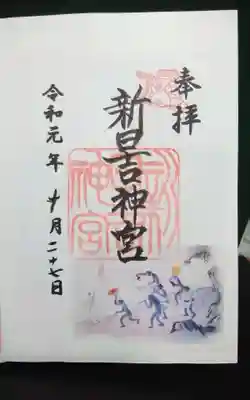 奉拝
新日吉神宮
令和元年 十月二十七日
神宮